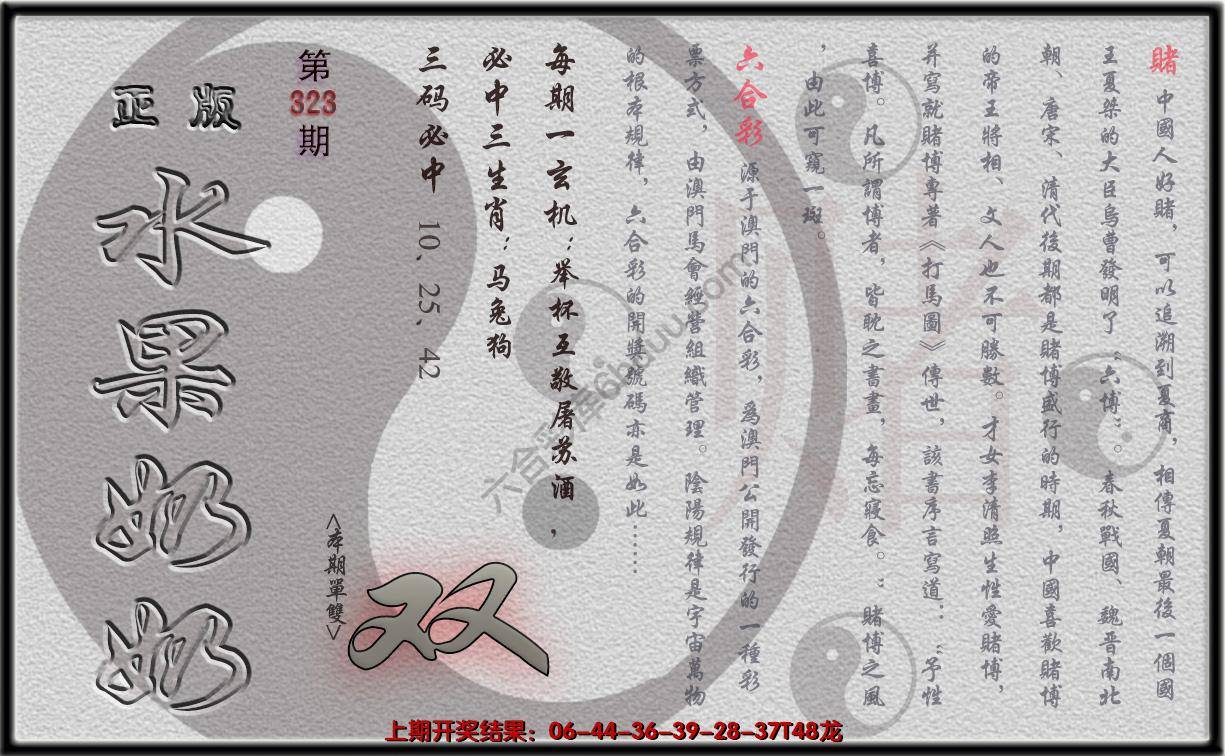 賭 中國人好賭，可以追溯到夏商，相傳夏朝最後一個國
王夏桀的大臣烏曹發明了“六博”。春秋戰國、魏晋南北
朝、唐宋、清代後期都是賭博盛行的時期，中國喜歡賭博
的帝王將相、文人也不可勝數。才女李清照生性愛賭博，
并寫就賭博專著《打馬圖》傳世，該書序言寫道：“予性
喜博。凡所謂博者，皆耽之書畫，每忘寢食。”賭博之風
，由此可窺一斑。
六合彩 源于澳門的六合彩，爲澳門公開發行的一種彩
票方式，由澳門馬會經營組織管理。陰陽規律是宇宙萬物
的根本規律，六合彩的開獎號碼亦是如此……
每期一玄机：举杯互敬屠苏酒，
必中三生肖：马兔狗
三码必中 10、25、42
第
323
期
正版
水果奶奶
<本期單雙>
双
賭
上期开奖结果：06-44-36-39-28-37T48龙